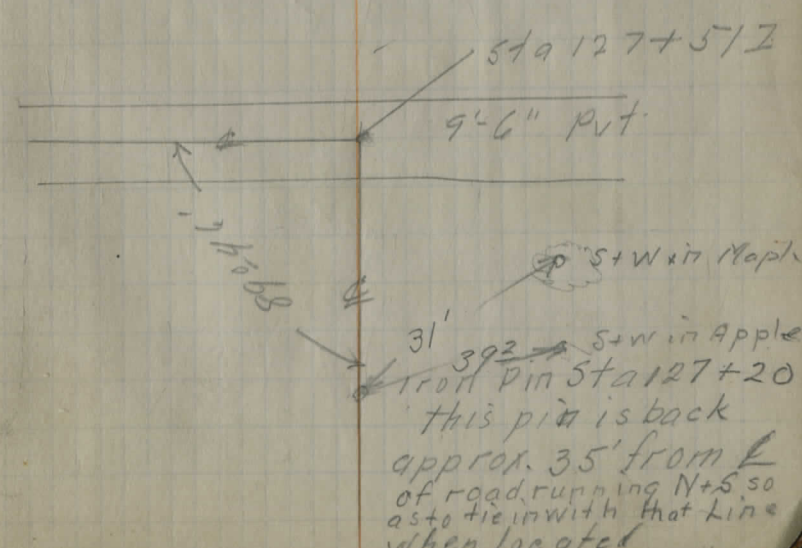 Sta 127+51
9'-6" Pvt.
℄
℄
S+W in Maple
31'
S+W in Apple
39²
Iron Pin Sta 127+20
this pin is back
approx. 35' from ℄
of road running N+S so
as to tie in with that Line
when located